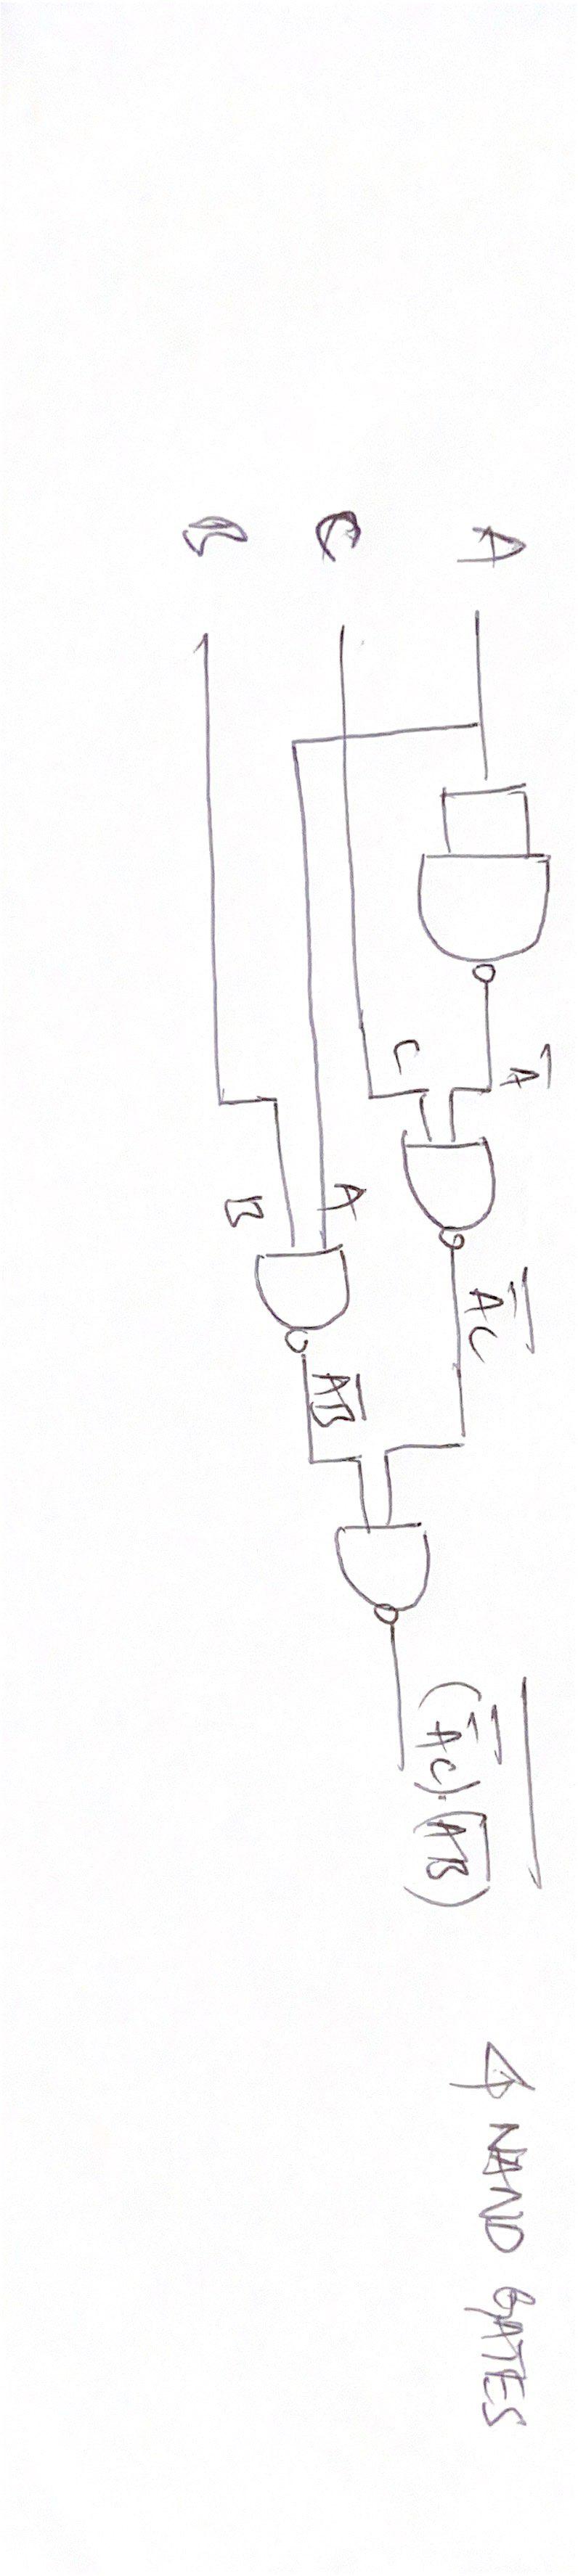 A
C
B
A̅
C
A
B
\overline{\overline{A}C}
\overline{AB}
\overline{(\overline{\overline{A}C})·(\overline{AB})}
4 NAND GATES